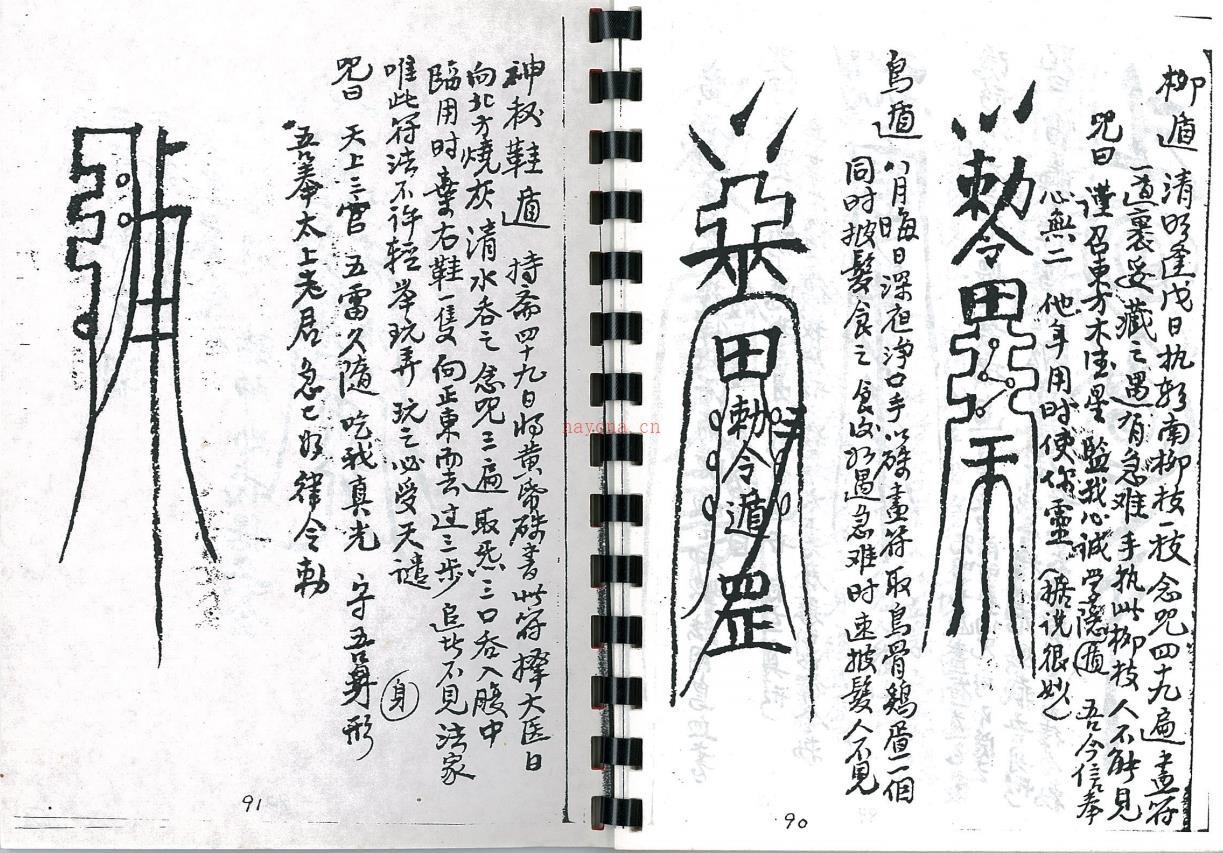 柳遁
清明逢戊日执彩南柳枝一枝念咒四十九遍画符
一道裹妥藏之遇有急难手执此柳枝人不能見
咒曰 謹召東方木德星 監我心诚学隱遁 吾今信奉
心無二 他年用时使你靈 (据说很妙)
勅令
田
鳥遁
八月晦日深夜净口手以硃畫符取鳥骨鷄蛋一個
同时披髮食之 食后如遇急难时速披髮人不見
田
勅令遁
罡
90
神秘鞋遁 持斋四十九日将黄帋硃書此符擇大医日
向北方燒灰清水吞之念咒三遍取炁三口吞入腹中
臨用时弃右鞋一隻向正東而去过三步追皆不見法家
唯此符法不许輕举玩弄 玩之必受天譴
咒曰 天上三官 五雷久隨 吃我真光 守吾算形
身
吾奉太上老君急匕如律令勅
91
nayona.cn